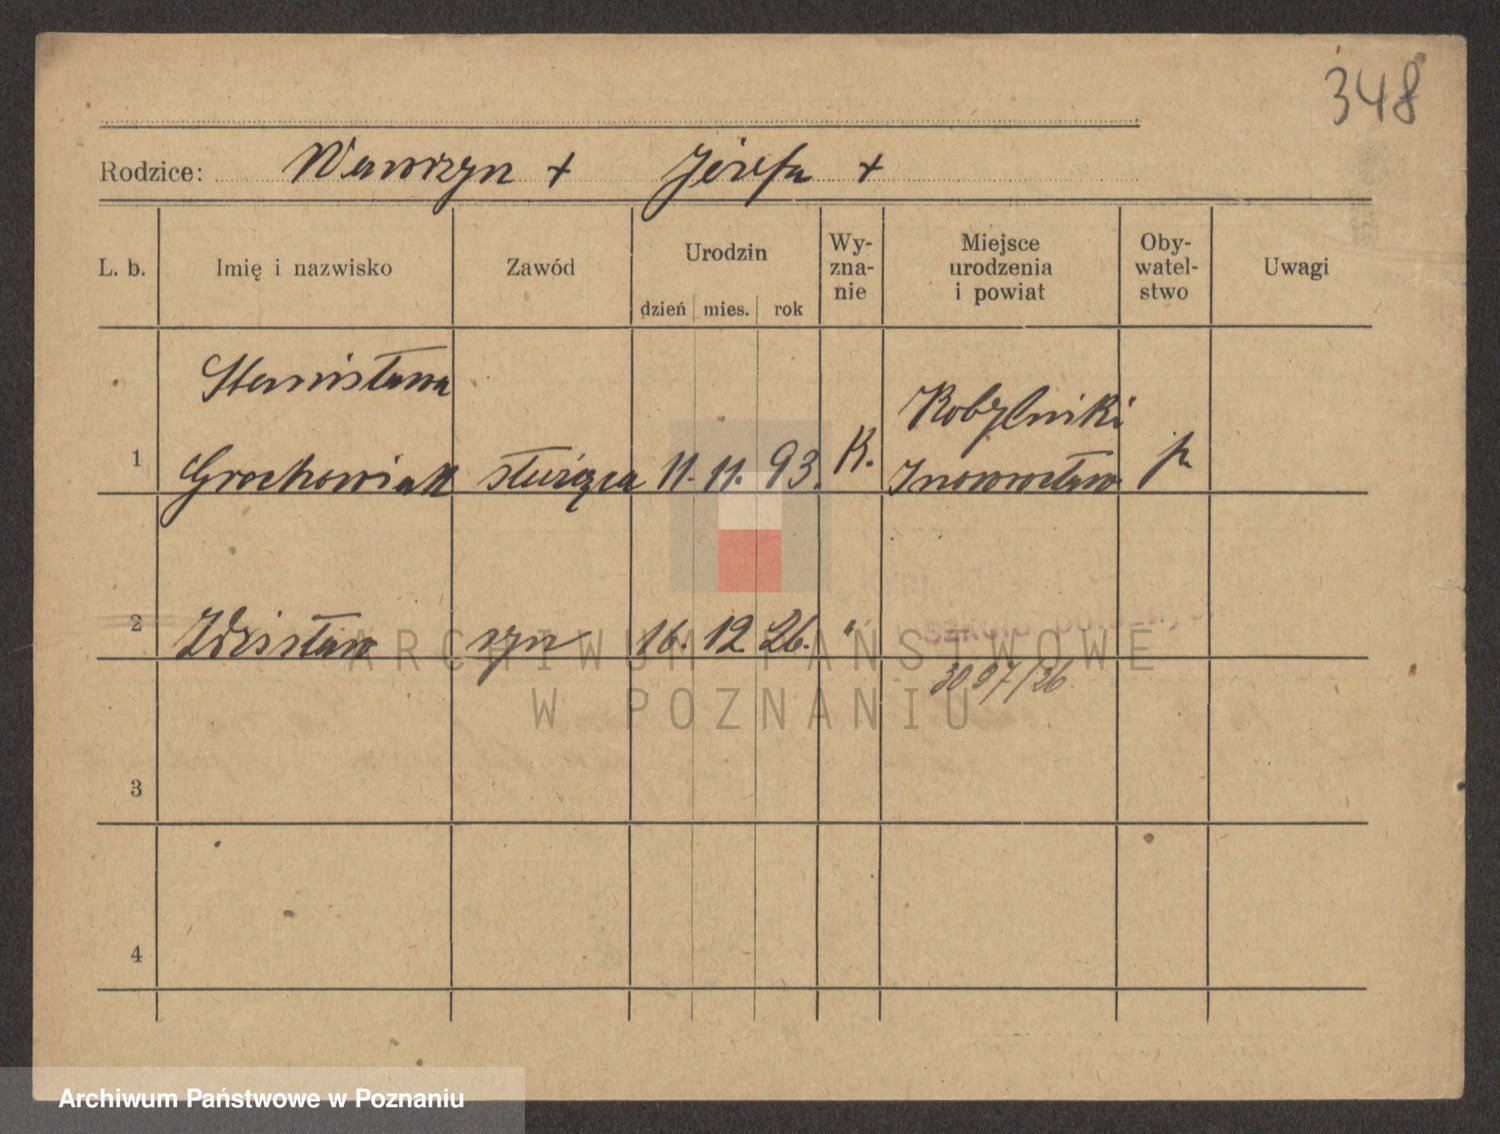 348
Rodzice: Wawrzyn + Józefa +
L. b. Imię i nazwisko Zawód Urodzin dzień mies. rok Wy-zna-nie Miejsce urodzenia i powiat Oby-watel-stwo Uwagi
Stanisława
Kobylniki
1 Grochowiak służąca 11. 11. 93. K. Inowrocław p
2 Zdzisław syn 16. 12 26. "
ARCHIWUM PAŃSTWOWE
3097/26
W POZNANIU
3
4
Archiwum Państwowe w Poznaniu